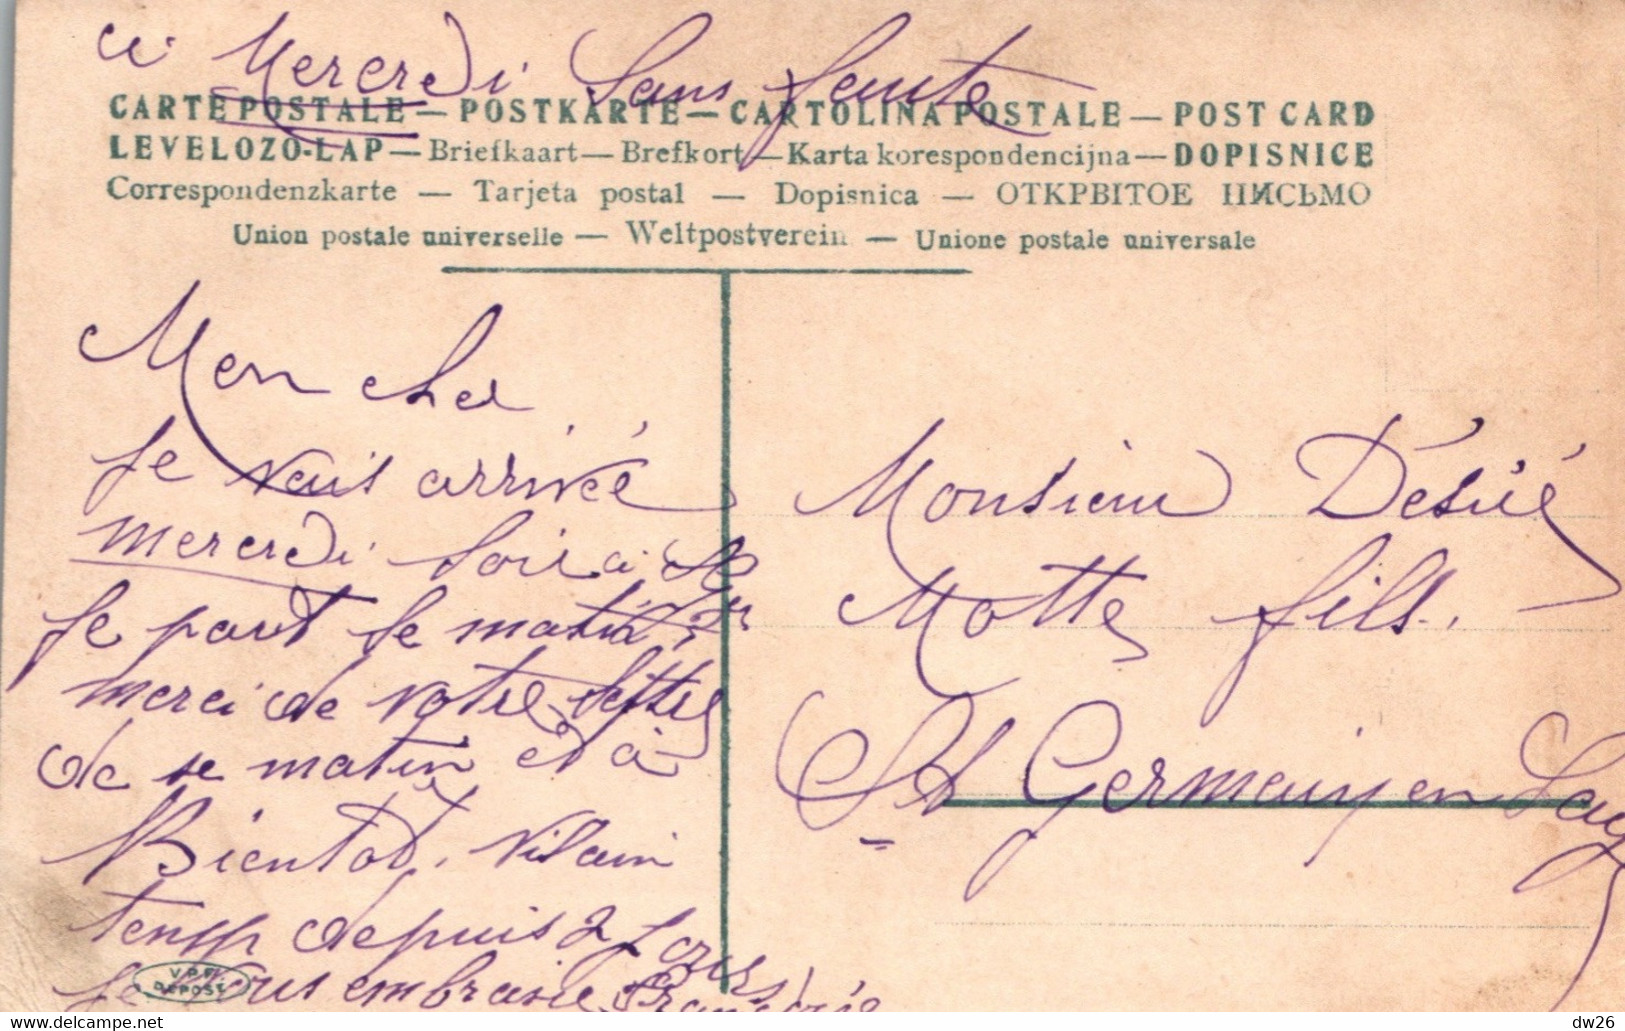 ce Mercredi Sans faute
CARTE POSTALE — POSTKARTE — CARTOLINA POSTALE — POST CARD
LEVELOZO-LAP — Briefkaart — Brefkort — Karta korespondencijna — DOPISNICE
Correspondenzkarte — Tarjeta postal — Dopisnica — ОТКРВІТОЕ ПИСЬМО
Union postale universelle — Weltpostverein — Unione postale universale
Mon cher
Je vais arrivée
mercredi soir à
Je part le matin
merci de votre lettre
de se matin et à
Bientot. vilain
temp depuis 2 jours
Je vous embrasse
V.P.F
DEPOSÉ
Monsieur Désiré
Motte fils.
St Germain en Lay
dw26